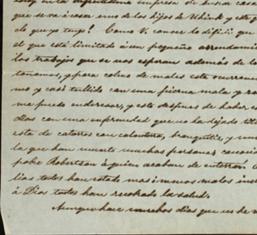 estoy en la dificultosa empresa de buscar casa
que se va á casa uno de los hijos de
de que yo tengo? Como V. conoce lo difícil que
el que está limitado á un pequeño arrendamien
los trabajos que se nos esperan además de lo
tenemos, y para colmo de males esta ocurrencia
mo y casi tullido con una pierna mala y
me puedo enderezar, y esto despues de haber
dias con una enfermedad que no ha dejado
esta de catarros con calentura, bronquitis, y
la que han muerto muchas personas,
pobre Robertson á quien acaban de enterrar.
dias todos han estado mas ó menos malos
á Dios todos han recobrado la salud.
Aunque hace muchos dias que no he